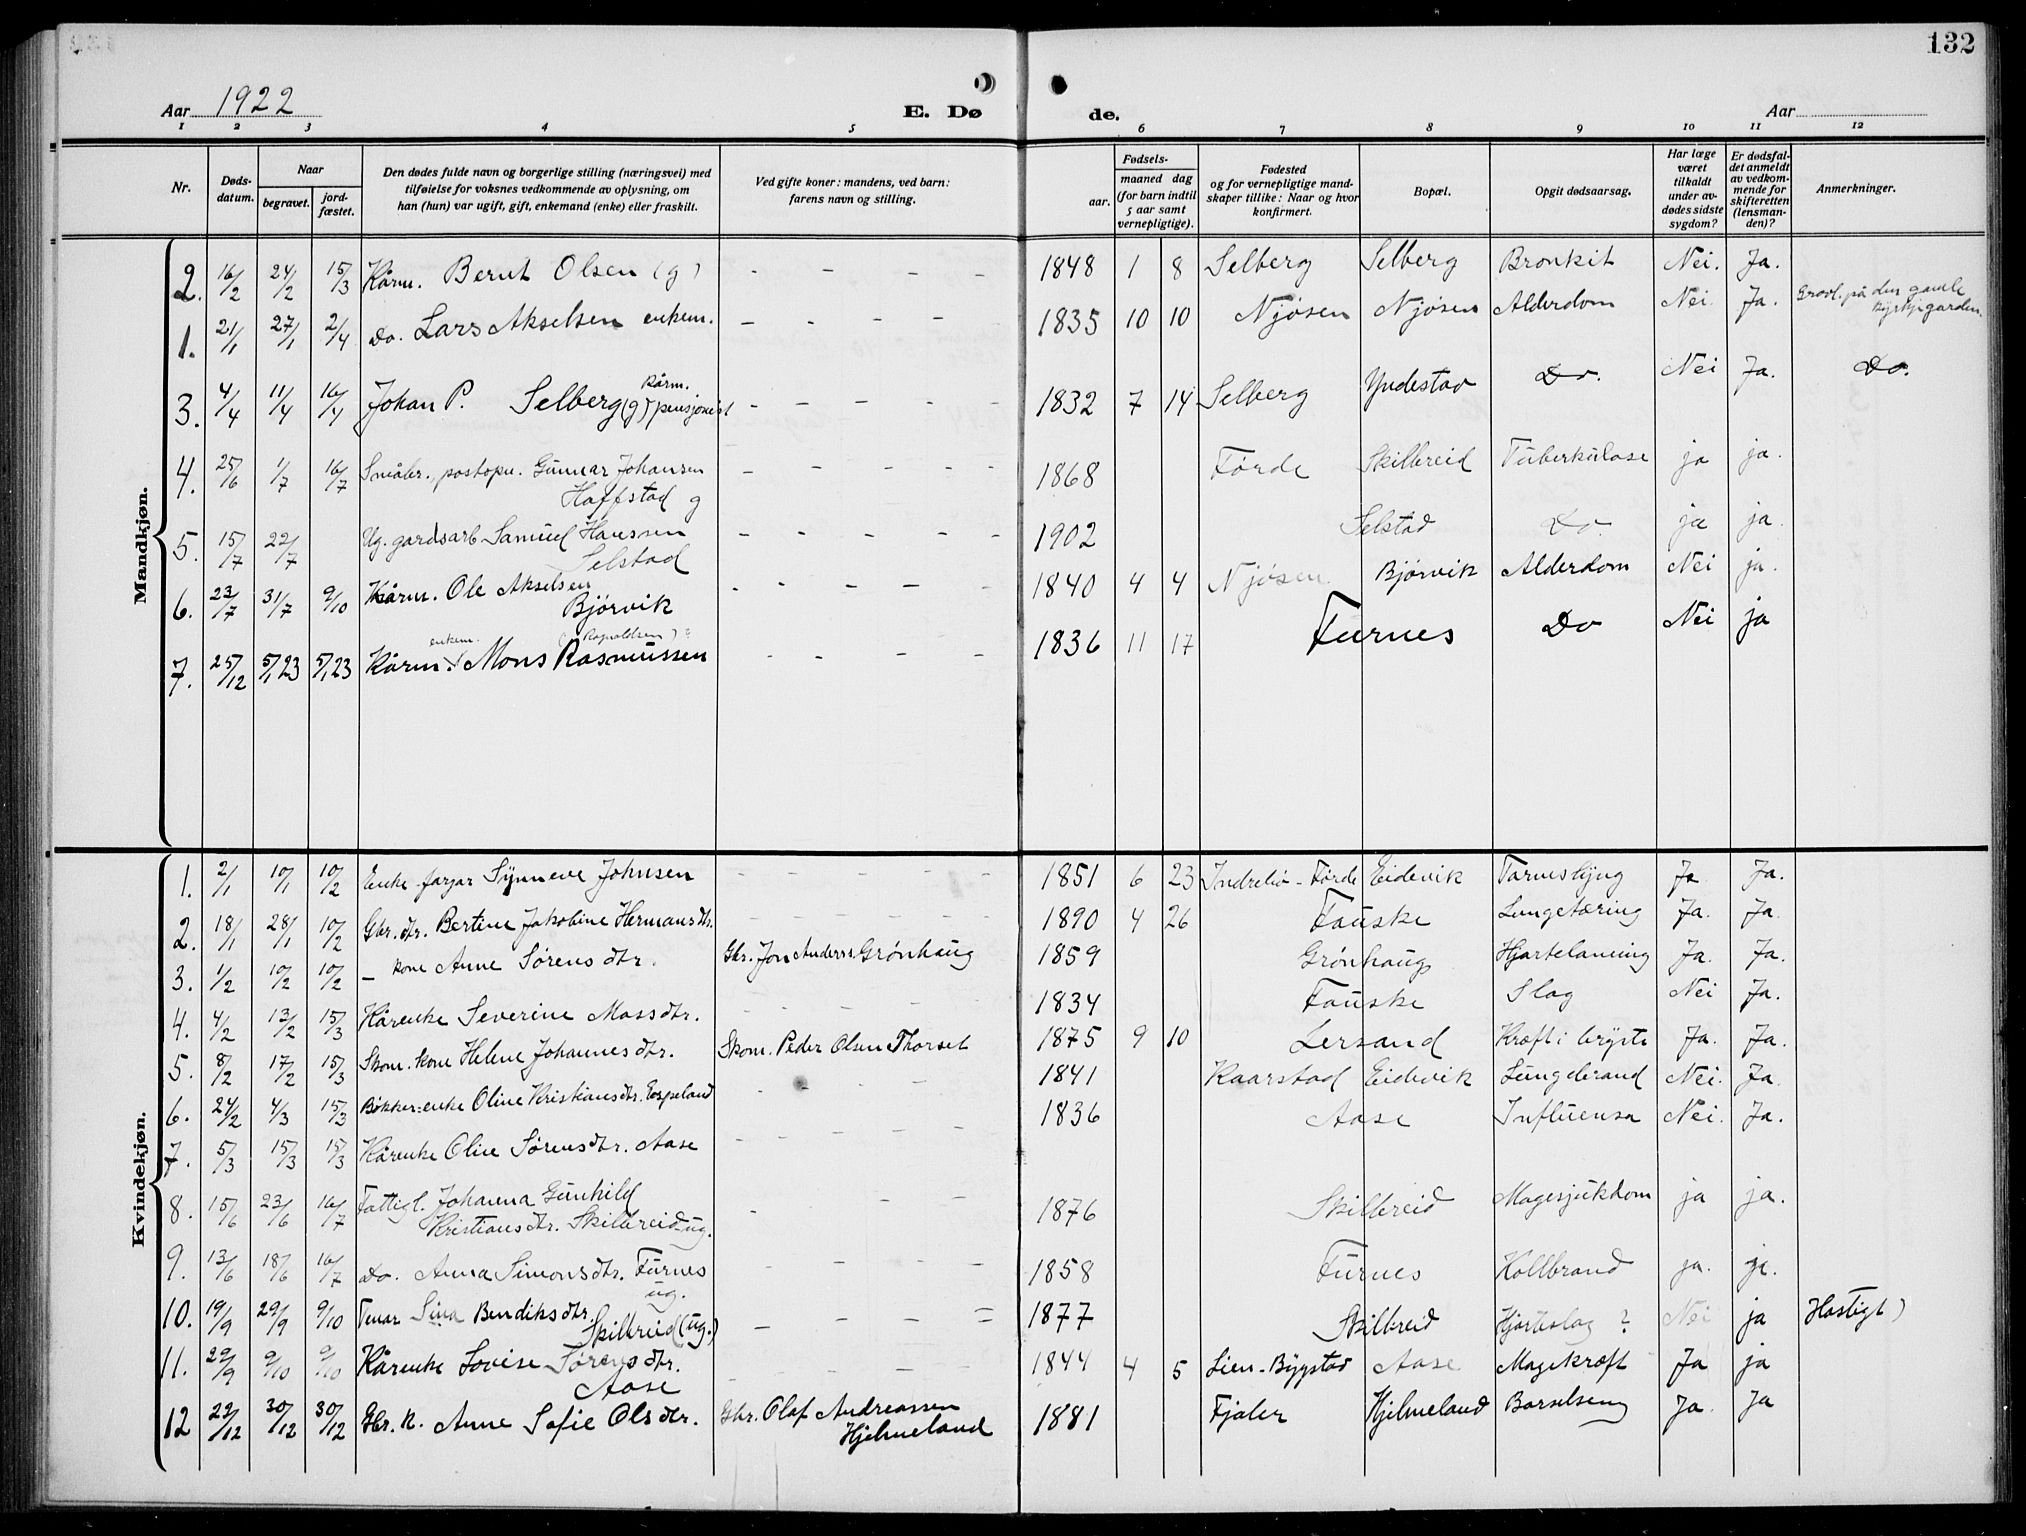 132
Aar 1922 E. Dø de. Aar
1 2 3 4 5 6 7 8 9 10 11 12
Nr.
Døds-
datum.
Naar
begravet.
jord-
fæstet.
Den dødes fulde navn og borgerlige stilling (næringsvei) med
tilføielse for voksnes vedkommende av oplysning, om
han (hun) var ugift, gift, enkemand (enke) eller fraskilt.
Ved gifte koner: mandens, ved barn:
farens navn og stilling.
Fødsels-
aar.
maaned dag
(for barn indtil
5 aar samt
vernepligtige).
Fødested
og for vernepligtige mand-
skaper tillike: Naar og hvor
konfirmert.
Bopæl.
Opgit dødsaarsag.
Har læge
været
tilkaldt
under av-
dødes sidste
sygdom?
Er dødsfal-
det anmeldt
av vedkom-
mende for
skifteretten
(lensman-
den)?
Anmerkninger.
Mandkjøn.
2. 16/2 24/2 15/3 Kårm. Bernt Olsen (g) - - - - 1848 1 8 Selberg Selberg Bronkit Nei. Ja.
1. 21/1 27/1 2/4 Do. Lars Akselsen enkem. - - - - 1835 10 10 Njøsen Njøsen Alderdom Nei. Ja. Gravl. på den gamle
kyrkjegarden.
3. 4/4 11/4 16/4 Johan P. Selberg (g) kårm. pensjonist - - - - 1832 7 14 Selberg Yndestad Do. Nei Ja. Do.
4. 25/6 1/7 16/7 Småbr., postopn. Gunnar Johansen
Haffstad g - - - - 1868 Førde Skilbreid Tuberkulose ja ja.
5. 15/7 22/7 Ug. gardsarb. Samuel Hanssen
Selstad - - - - 1902 Selstad Do. ja ja.
6. 23/7 31/7 9/10 Kårm. Ole Akselsen
Bjørvik - - - - 1840 4 4 Njøsen Bjørvik Alderdom Nei ja.
enkem. (Ragnaldsen)?
7. 25/12 5/1 23 5/1 23 Kårm. Mons Rasmussen - - - - 1836 11 17 Furnes Do Nei ja
Kvindekjøn.
1. 2/1 10/1 10/2 Enke farjar Synneve Johnsen - - - - 1851 6 23 Indrebø - Førde Eidevik Tarmslyng Ja Ja.
2. 18/1 28/1 10/2 Gbr. dtr. Bertine Jakobine Hermansdtr. - - - - 1890 4 26 Fauske Lungetæring Ja. Ja.
3. 1/2 10/2 10/2 - kone Anne Sørensdtr. Gbr. Jon Anderss. Grønhaug 1859 Grønhaug Hjartelaming Ja. Ja.
4. 4/2 13/2 15/3 Kårenke Severine Massdtr. - - - - 1834 Fauske Slag Nei Ja.
5. 8/2 17/2 15/3 Skom. kone Helene Johannesdtr. Skom. Peder Olsen Thorset 1875 9 10 Lersand Kræft i brysts Ja. Ja.
6. 24/2 4/3 15/3 Bøkker-enke Oline Kristiansdtr. Espeland - - - - 1841 Kaarstad Eidevik Lungebrand Nei. Ja.
7. 5/3 15/3 15/3 Kårenke Oline Sørensdtr. Aase - - - - 1836 Aase Influensa Nei. Ja.
8. 15/6 23/6 16/7 Fattigl. Johanna Gunhild
Kristiansdtr. Skilbreid ug. - - - 1876 Skilbreid Magesjukdom ja ja.
9. 13/6 18/6 16/7 Do. Anna Simonsdtr. Furnes
ug. - - - - 1858 Furnes Kollbrand ja. ja.
10. 19/9 29/9 9/10 Tenar Sina Bendiksdtr.
Skilbreid (ug.) - - - = 1877 Skilbreid Hjarteslag ? Nei ja Hastigt)
11. 29/9 9/10 9/10 Kårenke Lovise Sørensdtr.
Aase - - - - 1844 4 5 Lien - Bygstad Aase Magekræft Ja ja
12 23/12 30/12 30/12 Gbr. k. Anne Sofie Olsdtr. Gbr. Olaf Andreassen
Hjelmeland 1881 Fjaler Hjelmeland Barselseng Ja. Ja